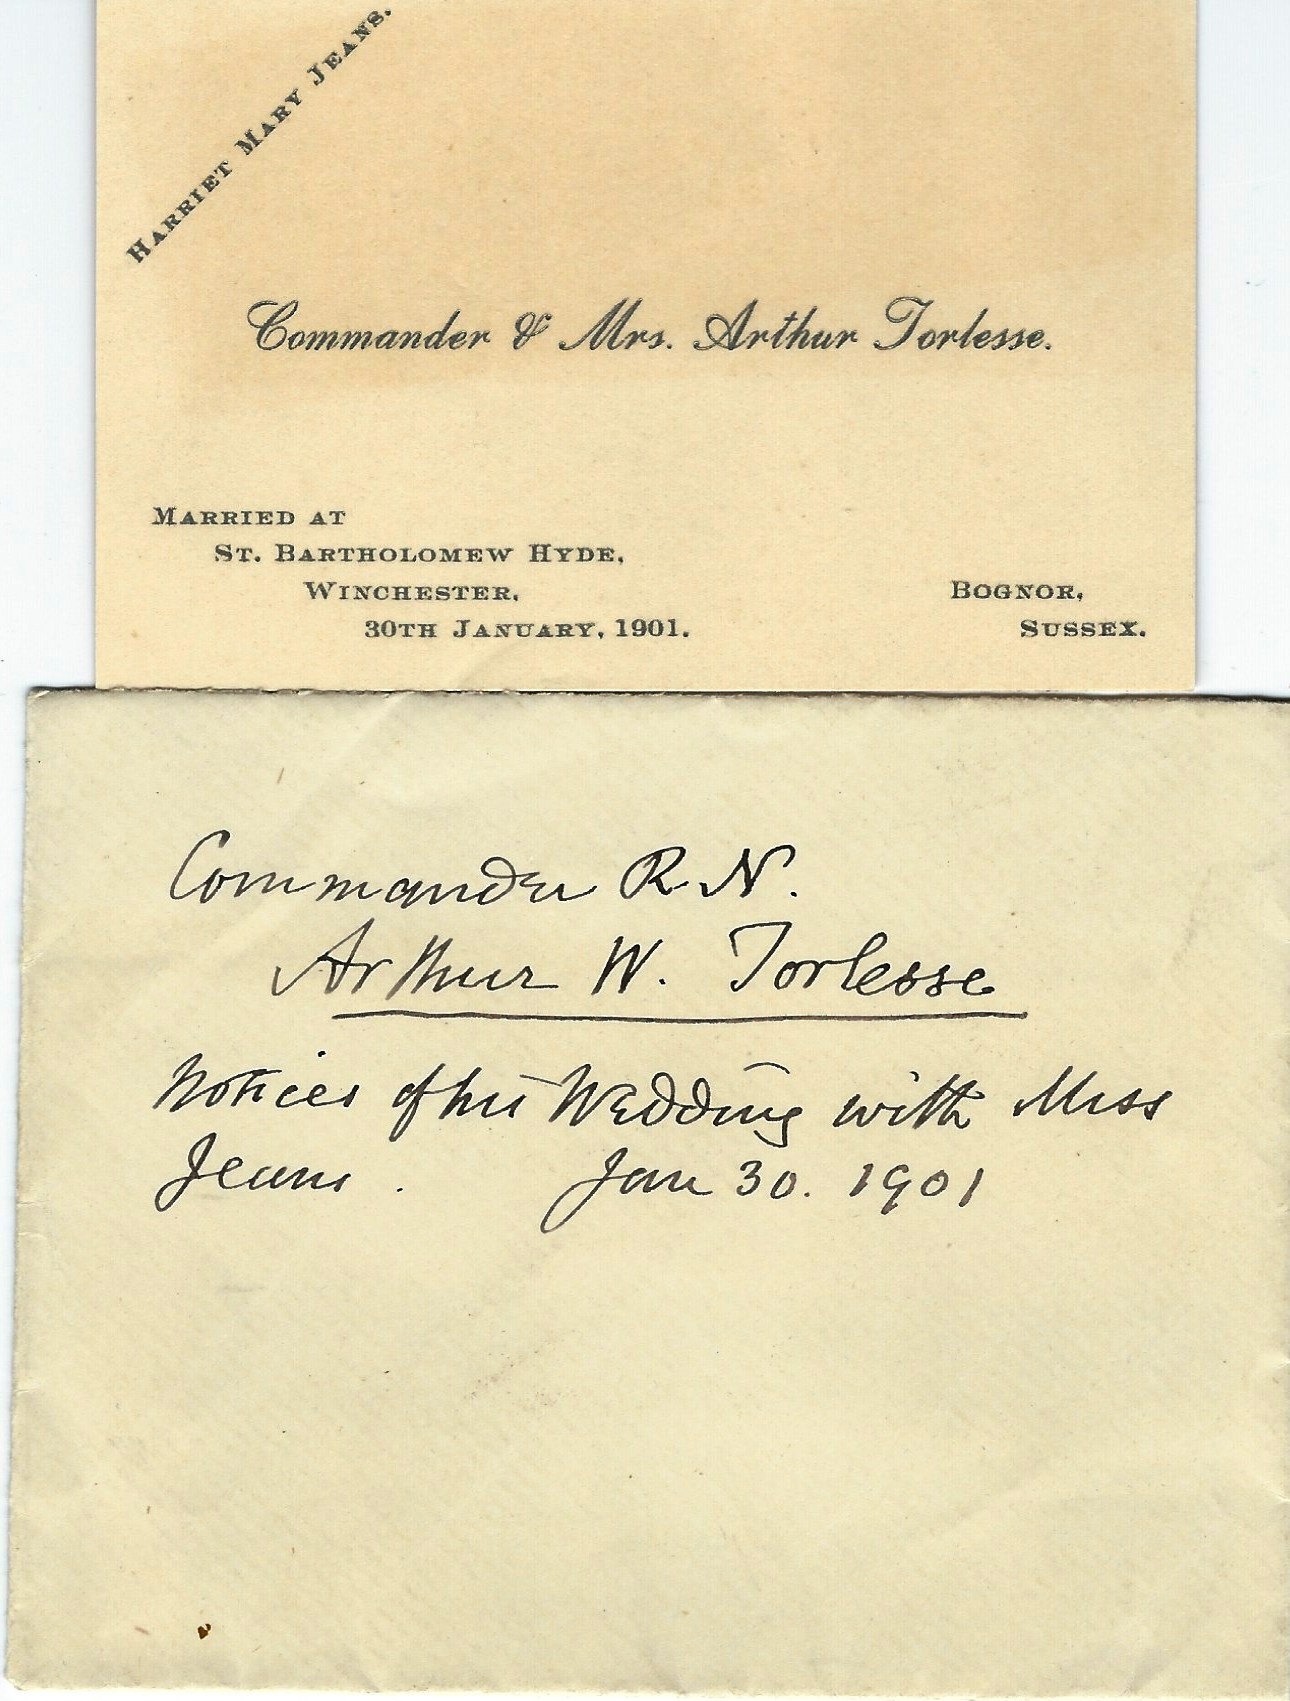 HARRIET MARY JEANS.
Commander & Mrs. Arthur Torlesse.
MARRIED AT
ST. BARTHOLOMEW HYDE,
WINCHESTER,
30TH JANUARY, 1901.
BOGNOR,
SUSSEX.
Commander R.N.
Arthur W. Torlesse
Notices of his Wedding with Miss
Jeans. Jan 30. 1901